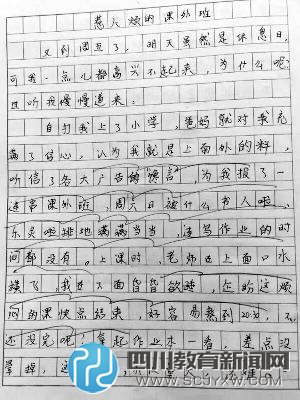 惹人烦的课外班
又到周五了，明天虽然是休息日，
可我一点儿都高兴不起来，为什么呢？
且听我慢慢道来。
自打我上了小学，爸妈就对我充
满了信心，认为我就是上南外的料，
听信了各大广告的谗言，为我报了一
连串课外班，周六日被什么书人啦，
乐夫啦排地满满当当，连写作业的时
间都没有。上课时，老师在上面口水
横飞，我在下面昏昏欲睡，在盼这烦
闷的课快点结束，好容易熬到20:30，
还没完呢！拿起作业本一看，差点没
晕掉，这
四川教育新闻网
WWW.SCJYXW.COM